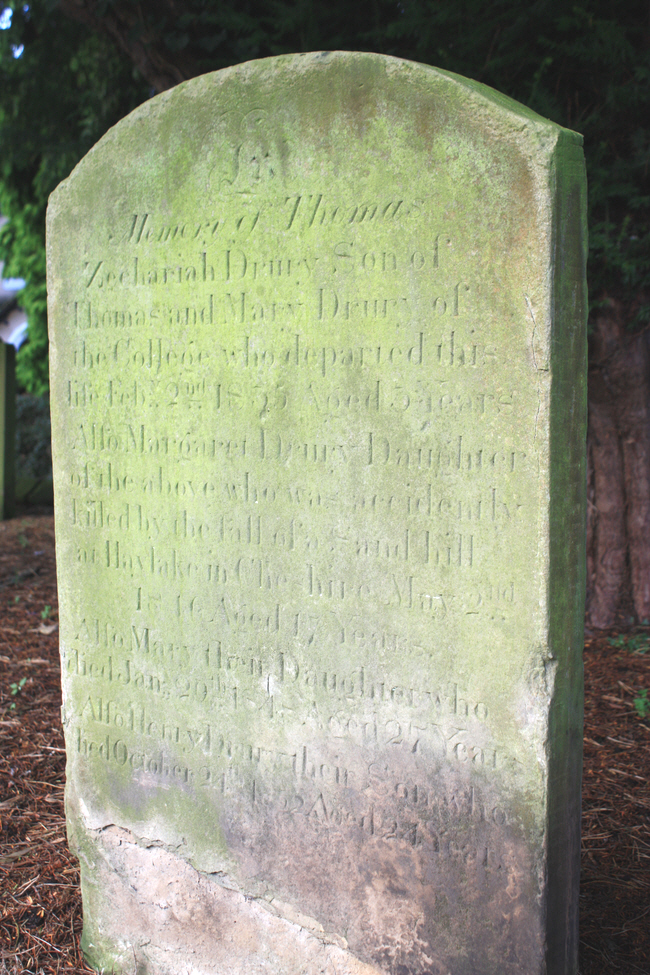 In
Memory of Thomas
Zechariah Drury Son of
Thomas and Mary Drury of
the College who departed this
life Feb.y 2nd 1835 Aged 5 Years
Alſo Margaret Drury Daughter
of the above who was accidently
killed by the fall of a sand hill
at Haylake in Cheshire May 2nd
1846 Aged 17 Years.
Alſo Mary their Daughter who
died Jany 20th 1847 Aged 27 Years
Alſo Henry Drury their Son who
died October 24th Aged 24 Years.